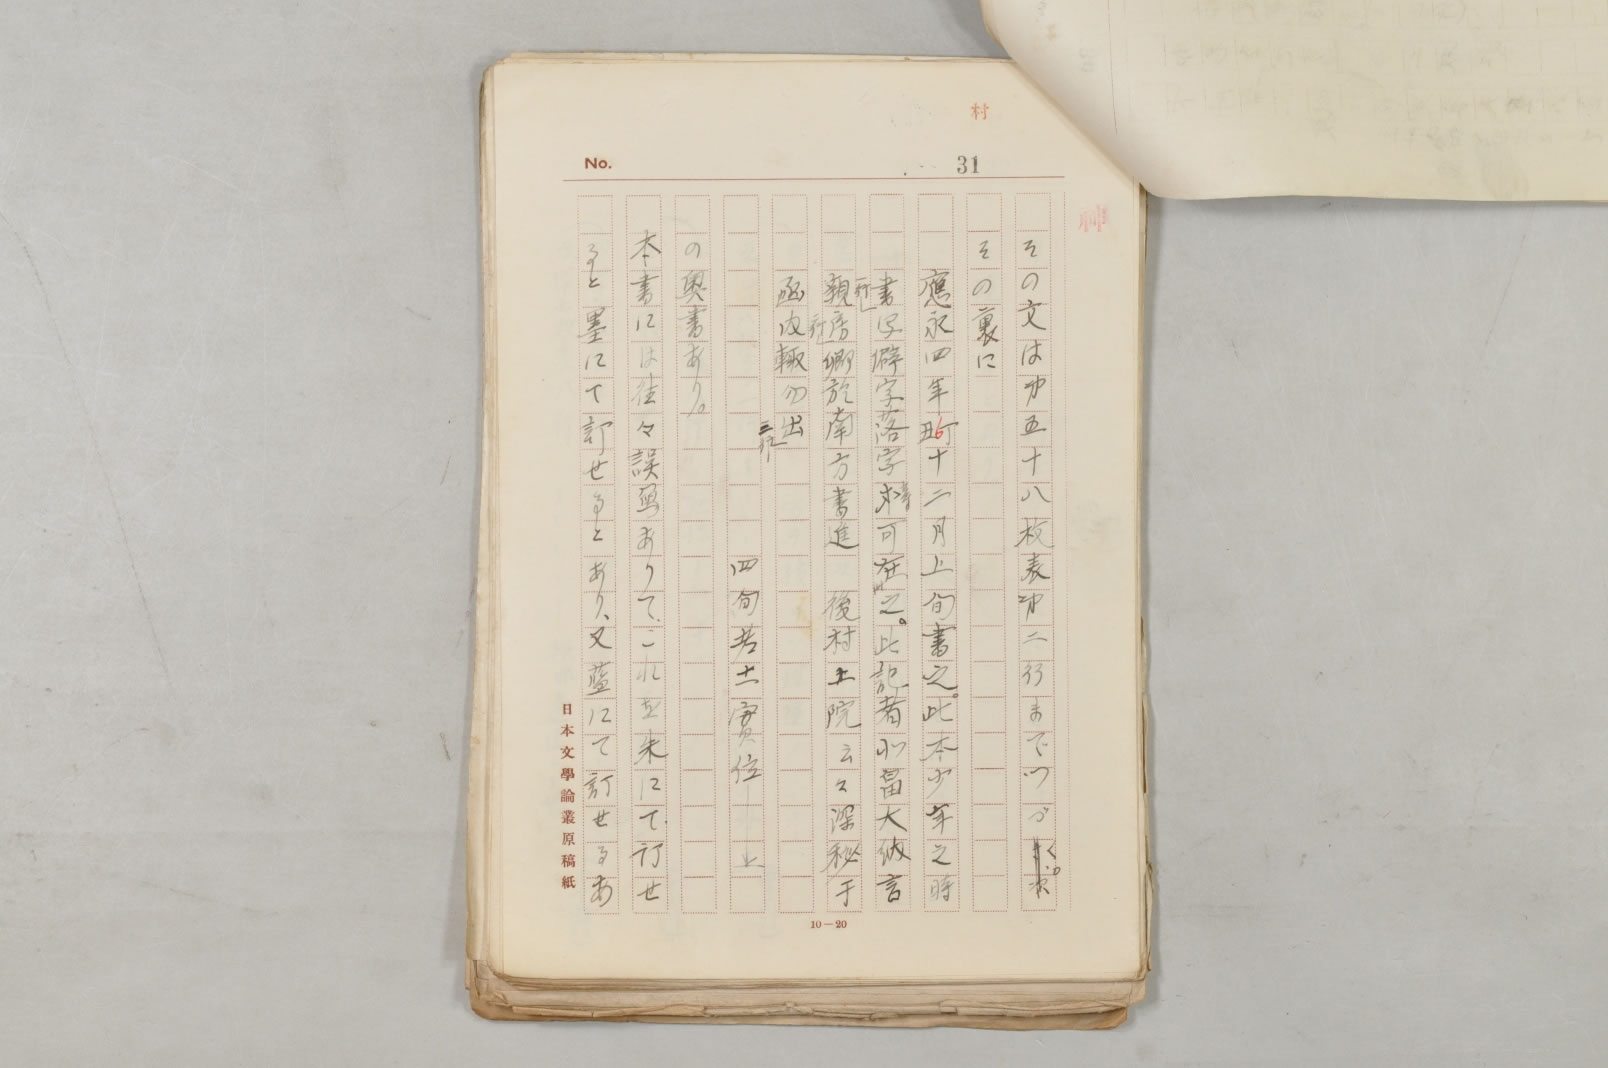 村
No. 31
その文は第五十八枚表第二行までつゞく。次
その裏に
應永四年丁丑十二月上旬書之。此本少年之時
書写僻字落字等可在之。此記者北畠大納言
親房卿於南方書進 後村上院云々深秘于
函内輙勿出
四旬若士實位
の奥書あり。
本書には往々誤寫ありて、これを朱にて訂せ
ると墨にて訂せるとあり、又藍にて訂せるあ
日本文學論叢原稿紙
10—20